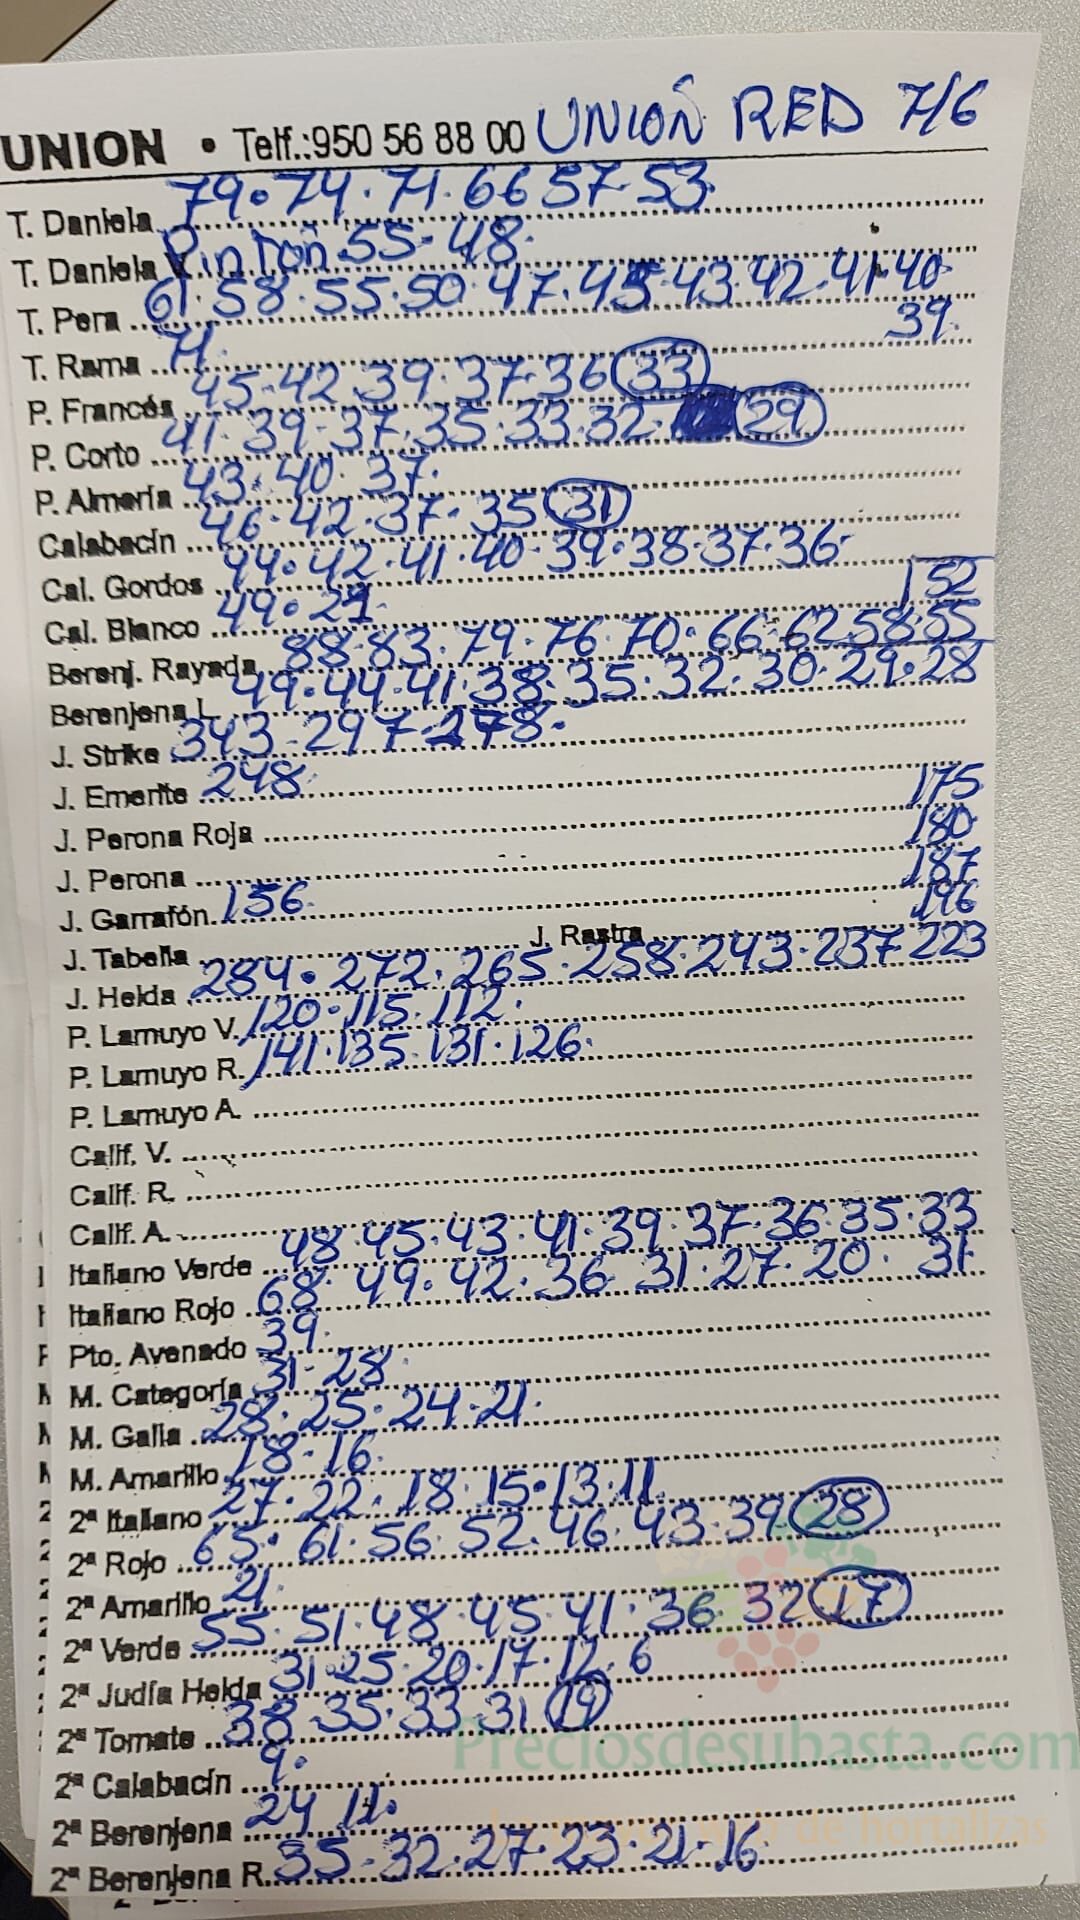 UNION • Telf.:950 56 88 00 UNION RED 7/6
T. Daniela 79·74·71·66 57·53
T. Daniela V. Pintón 55-48
T. Pera 61·58·55·50·47·45·43·42·41·40
39
T. Rama 71
P. Francés 45-42 39·37·36 33
P. Corto 41·39-37·35·33·32 29
P. Almería 43·40·37
Calabacín 46·42·37·35 31
Cal. Gordos 44·42·41·40·39·38·37·36
Cal. Blanco 49·
52
Berenj. Rayada 88·83·79·76·70·66·62 58·55
Berenjena L. 49·44·41·38·35·32·30·29·28
J. Strike 343-297-278
J. Emerite 248
J. Perona Roja 175
J. Perona 180
J. Garrafón 156 187
J. Tabella J. Rastra 196
J. Helda 284·272·265·258·243·237 223
P. Lamuyo V. 120·115·112
P. Lamuyo R. 141·135·131·126
P. Lamuyo A.
Calif. V.
Calif. R.
Calif. A.
Italiano Verde 48·45·43·41·39·37·36·35·33
Italiano Rojo 68·49·42·36 31·27·20· 31
Pto. Avenado 39
M. Categoría 31-28
M. Galia 28·25·24·21
M. Amarillo 18·16
2ª Italiano 27·22·18·15·13·11
2ª Rojo 65·61·56·52·46·43·39 28
2ª Amarillo 21
2ª Verde 55·51·48·45·41·36·32 17
2ª Judía Helda 31·25·20·17·12·6
2ª Tomate 38·35·33·31 19
2ª Calabacín 9
2ª Berenjena 24 11
2ª Berenjena R. 35-32·27·23·21-16
Preciosdesubasta.com
de hortalizas